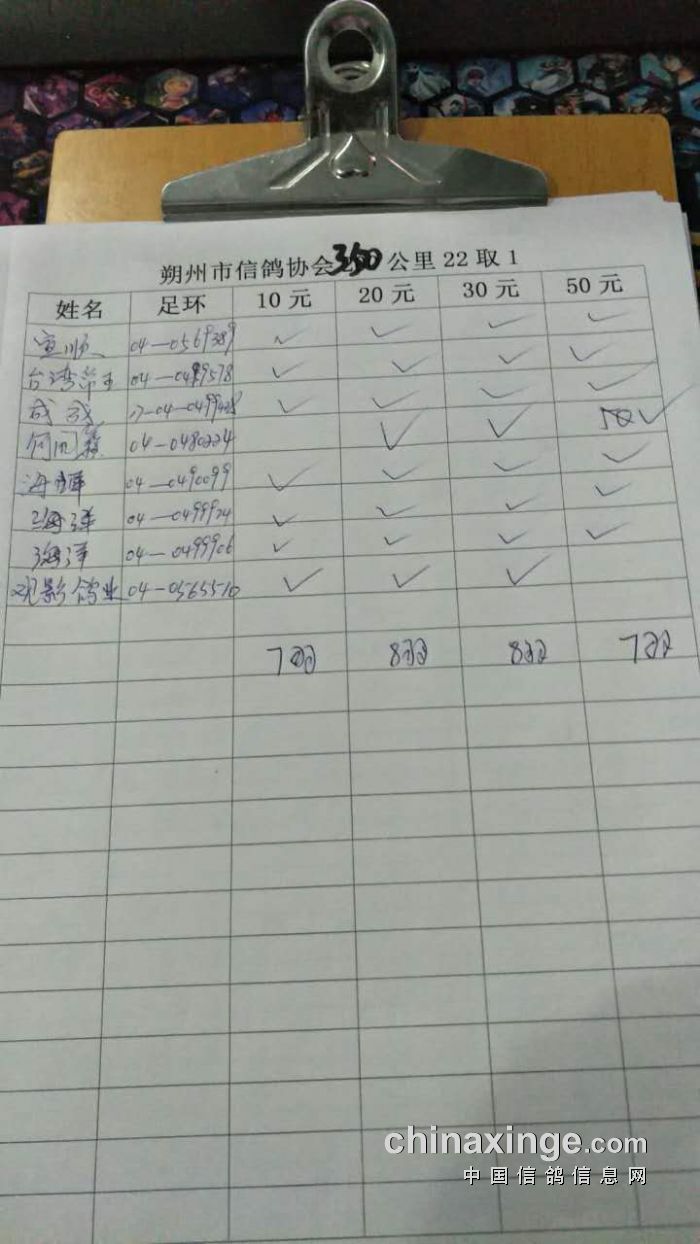 朔州市信鸽协会350公里22取1
姓名 足环 10元 20元 30元 50元
04-0569389 ✓ ✓ ✓ ✓
台湾 04-0489578 ✓ ✓ ✓ ✓
成成 17-04-0499428 ✓ ✓ ✓ ✓
04-0480224 ✓ ✓ 50 ✓
海洋 04-0490099 ✓ ✓ ✓ ✓
海洋 04-0499924 ✓ ✓ ✓ ✓
海洋 04-0499906 ✓ ✓ ✓ ✓
观影鸽业 04-0565510 ✓ ✓ ✓
7 8 8 7
chinaxinge.com
中国信鸽信息网